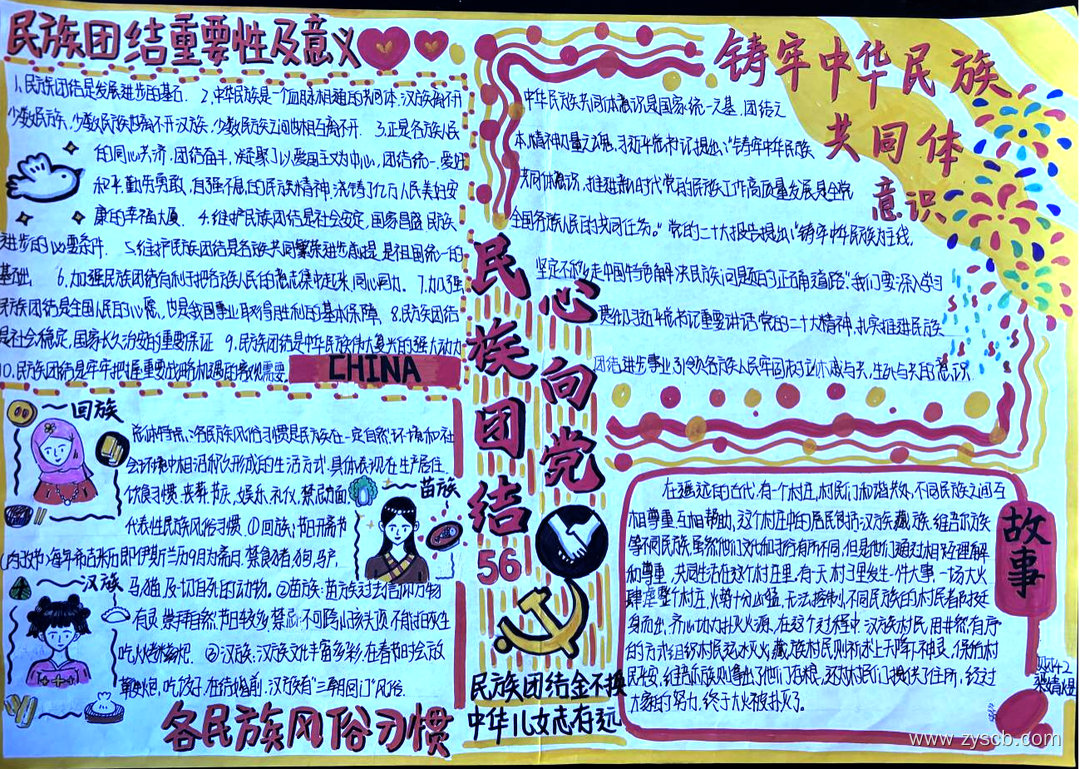 民族团结重要性及意义
1.民族团结是发展进步的基石. 2.中华民族是一个血脉相通的共同体,汉族离不开
少数民族,少数民族也离不开汉族,少数民族之间也相互离不开. 3.正是各族人民
的同心共济,团结奋斗,凝聚了以爱国主义为中心,团结统一,爱好
和平,勤劳勇敢,自强不息的民族精神,浇铸了亿万人民美好安
康的幸福大厦. 4.维护民族团结是社会安定,国家昌盛 民族
进步的必要条件. 5.维护民族团结是各族共同繁荣进步前提,是祖国统一的
基础. 6.加强民族团结有利于把各族人民的意志集中起来,同心同力. 7.加强
民族团结是全国人民的心愿,也是我国事业取得胜利的基本保障. 8.民族团结
是社会稳定,国家长久治安的重要保证 9.民族团结是中华民族伟大复兴的强大动力
10.民族团结是牢牢把握重要战略机遇的客观需要.
CHINA
铸牢中华民族
共同体
意识
中华民族共同体意识是国家统一之基,团结之
本,精神力量之魂.习近平总书记提出:"铸牢中华民族
共同体意识,推进新时代党的民族工作高质量发展是全党
全国各族人民的共同任务。"党的二十大报告提出:"铸牢中华民族为主线,
坚定不移走中国特色解决民族问题的正确道路".我们要深入学习
贯彻习近平总书记重要讲话党的二十大精神,扎实推进民族
团结进步事业,引领各族人民牢固树立休戚与共,生死与共的意识
民族团结
心向党
56
民族团结金不换
中华儿女志存远
回族
苗族
汉族
形体特点:各民族风俗习惯是民族在一定自然环境和社
会环境中相沿积久形成的生活方式.具体表现在生产居住,
饮食习惯,丧葬,节庆,娱乐,礼仪,禁忌方面
代表性民族风俗习惯.①回族:节日开斋节
马,猫,及一切自死的动物。②苗族:苗族过去信仰万物
有灵,崇拜自然,节日较多,禁忌:不可跨小孩头顶,不能拍灰生
③汉族:汉族文化丰富多彩,在春节时会放
各民族风俗习惯
故事
在遥远的古代,有一个村庄,村民们和谐共处,不同民族之间互
相尊重,互相帮助,这个村庄中的居民包括汉族,藏族,维吾尔族
等不同民族,虽然他们文化和习俗有所不同,但是他们通过相互理解
和尊重,共同生活在这个村庄里.有一天村子里发生一件大事,一场大火
肆虐整个村庄,火势十分凶猛,无法控制,不同民族的村民看到挺
身而出,齐心协力扑灭火源,在这个过程中,汉族村民,用井然有序
的方式组织村民运水灭火,藏族村民则祈求上天降下神灵,保佑村
民平安,维吾尔族则拿出了他们的粮,还为村民们提供了住所,经过
大家的努力,终于大火被扑灭了.
www.zyscb.com